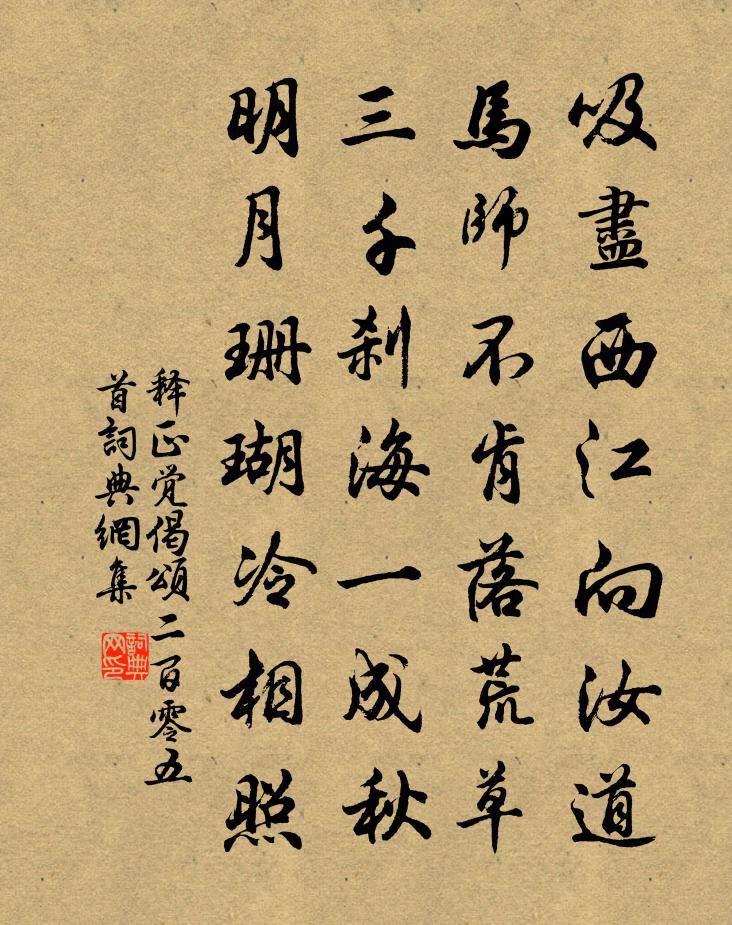 吸盡西江向汝道
馬師不肯落荒草
三千刹海一成秋
明月珊瑚冷相照
释正觉偈頌二百零五
首詞典網集
詞典
网印